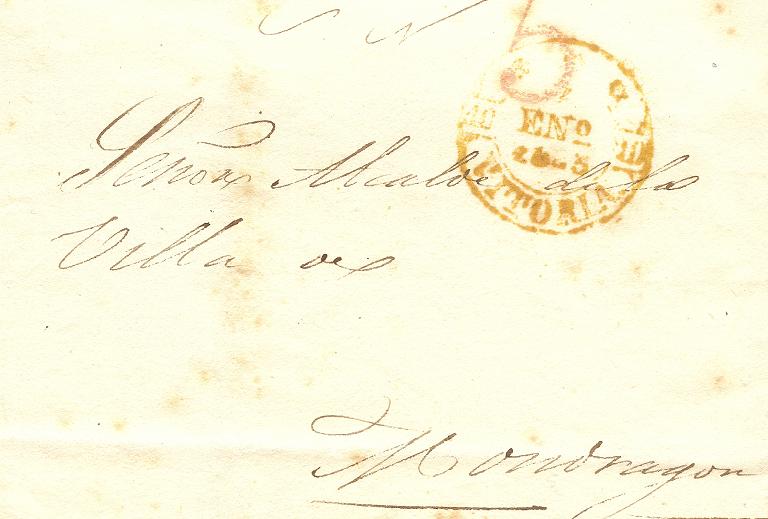 S. N
5
ENº
VITORIA.
Señor Alcalde de la
Villa de
Mondragon